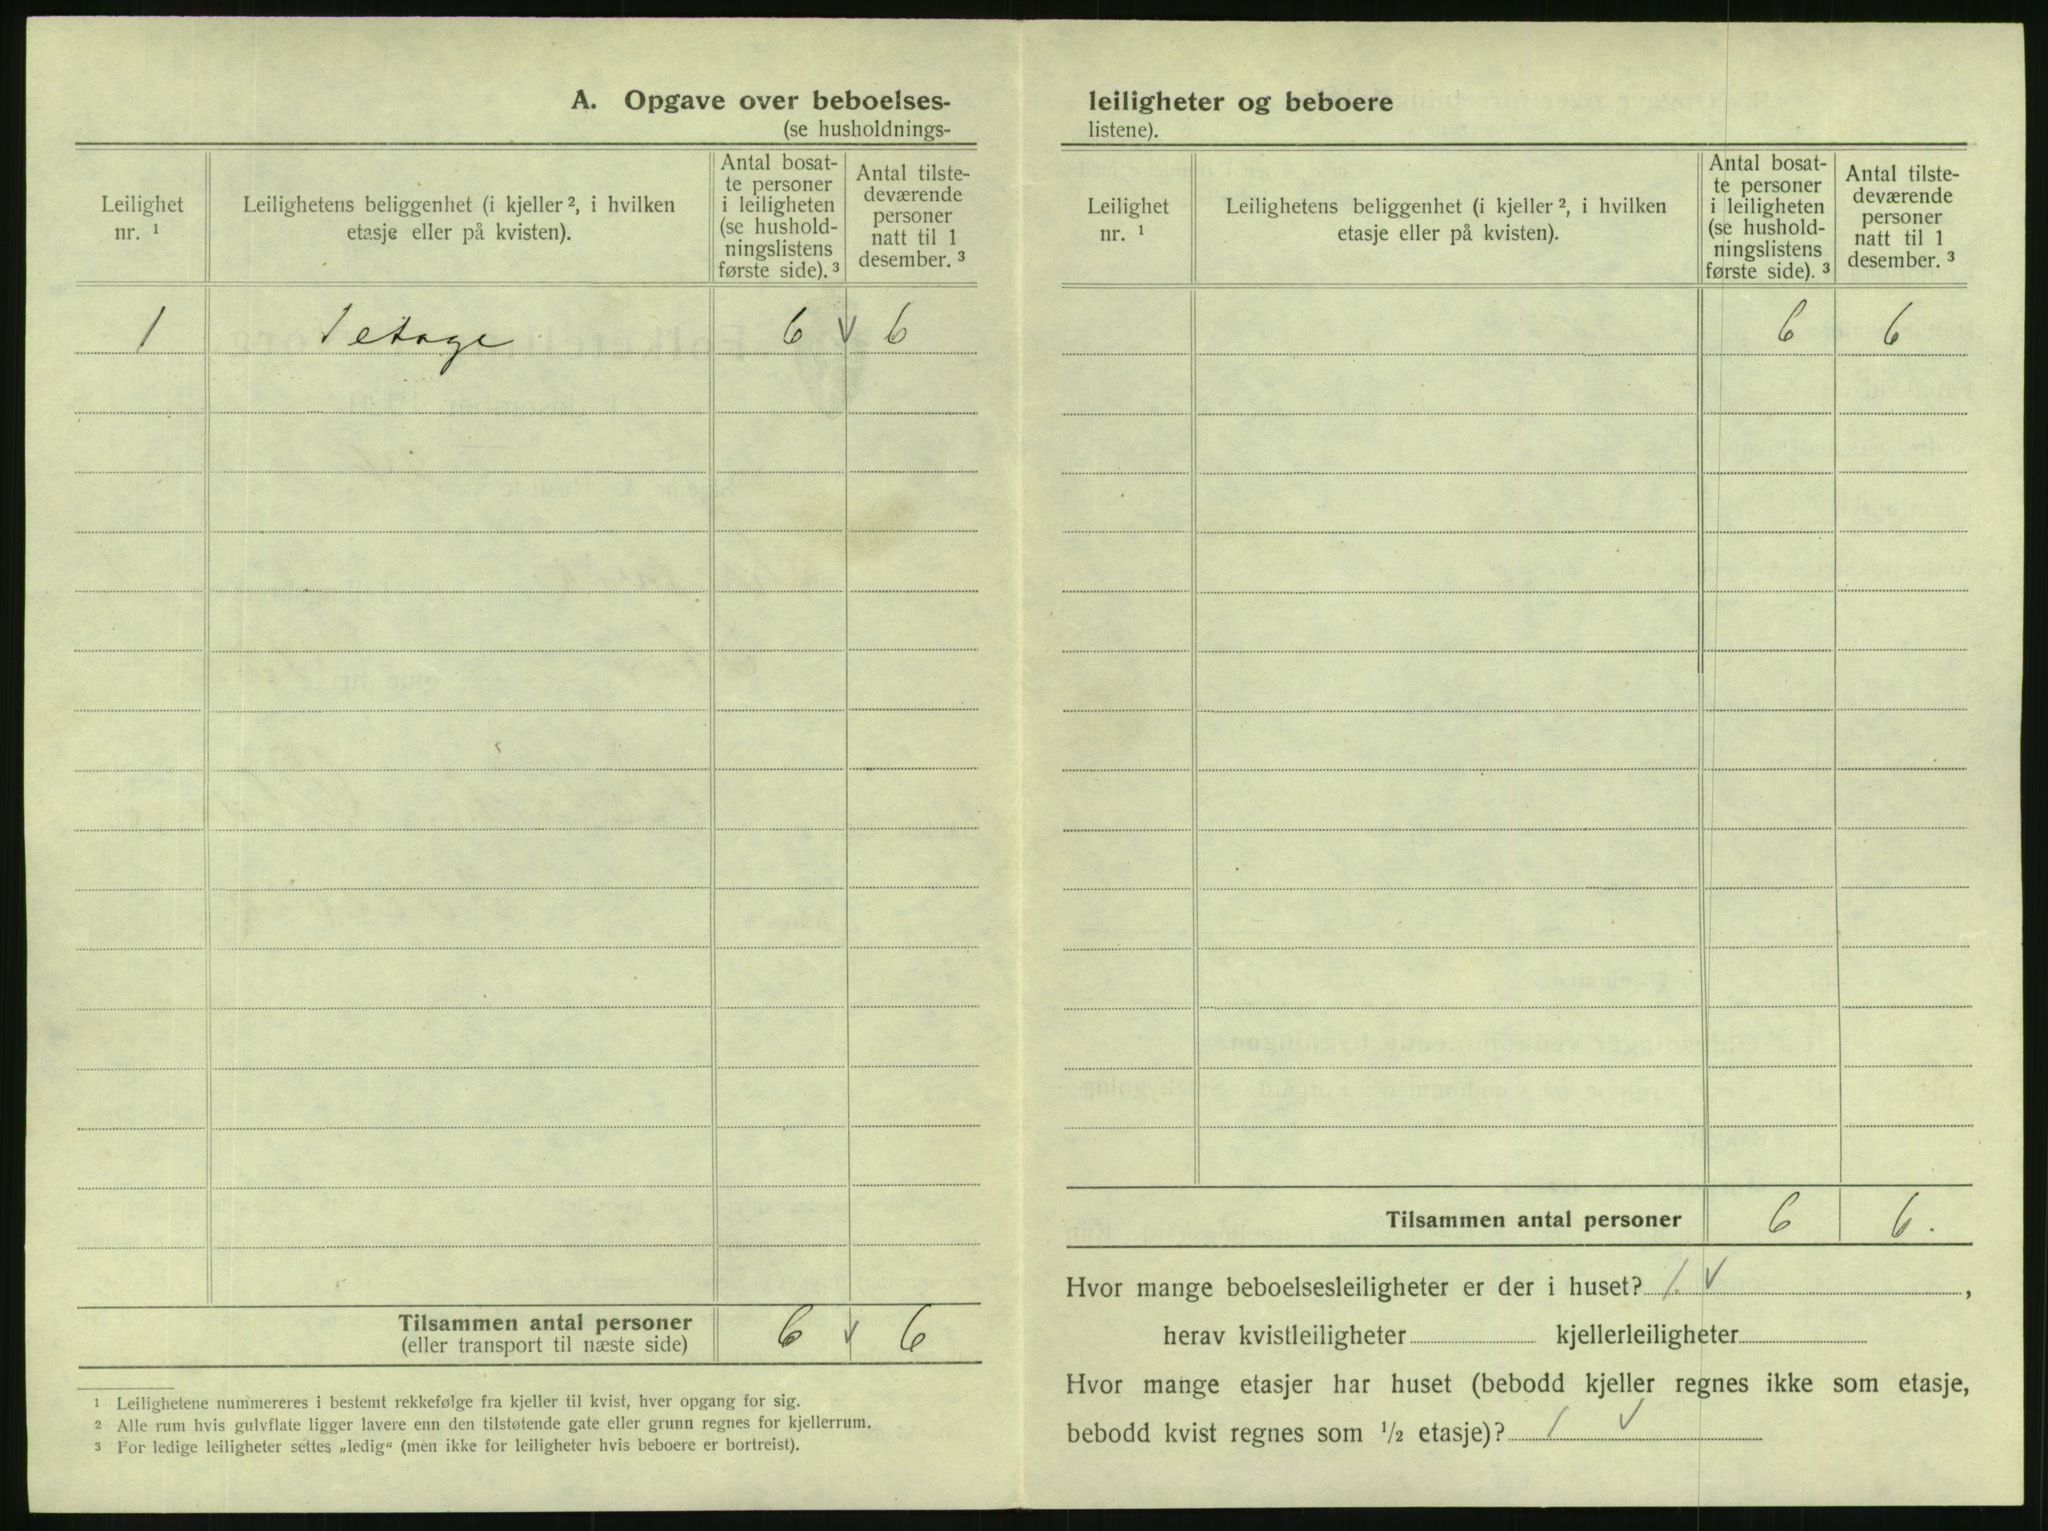 A. Opgave over beboelses-
(se husholdnings-
Leilighet nr. ¹
Leilighetens beliggenhet (i kjeller ², i hvilken etasje eller på kvisten).
Antal bosat-
te personer
i leiligheten
(se hushold-
ningslistens
første side). ³
Antal tilste-
deværende
personer
natt til 1
desember. ³
1 1 etage 6 √ 6
Tilsammen antal personer 6 √ 6
(eller transport til næste side)
¹ Leilighetene nummereres i bestemt rekkefølge fra kjeller til kvist, hver opgang for sig.
² Alle rum hvis gulvflate ligger lavere enn den tilstøtende gate eller grunn regnes for kjellerrum.
³ For ledige leiligheter settes „ledig“ (men ikke for leiligheter hvis beboere er bortreist).
leiligheter og beboere
listene).
Leilighet nr. ¹
Leilighetens beliggenhet (i kjeller ², i hvilken etasje eller på kvisten).
Antal bosat-
te personer
i leiligheten
(se hushold-
ningslistens
første side). ³
Antal tilste-
deværende
personer
natt til 1
desember. ³
6 6
Tilsammen antal personer 6 6.
Hvor mange beboelsesleiligheter er der i huset? 1. √ ,
herav kvistleiligheter kjellerleiligheter
Hvor mange etasjer har huset (bebodd kjeller regnes ikke som etasje,
bebodd kvist regnes som ½ etasje)? 1 √